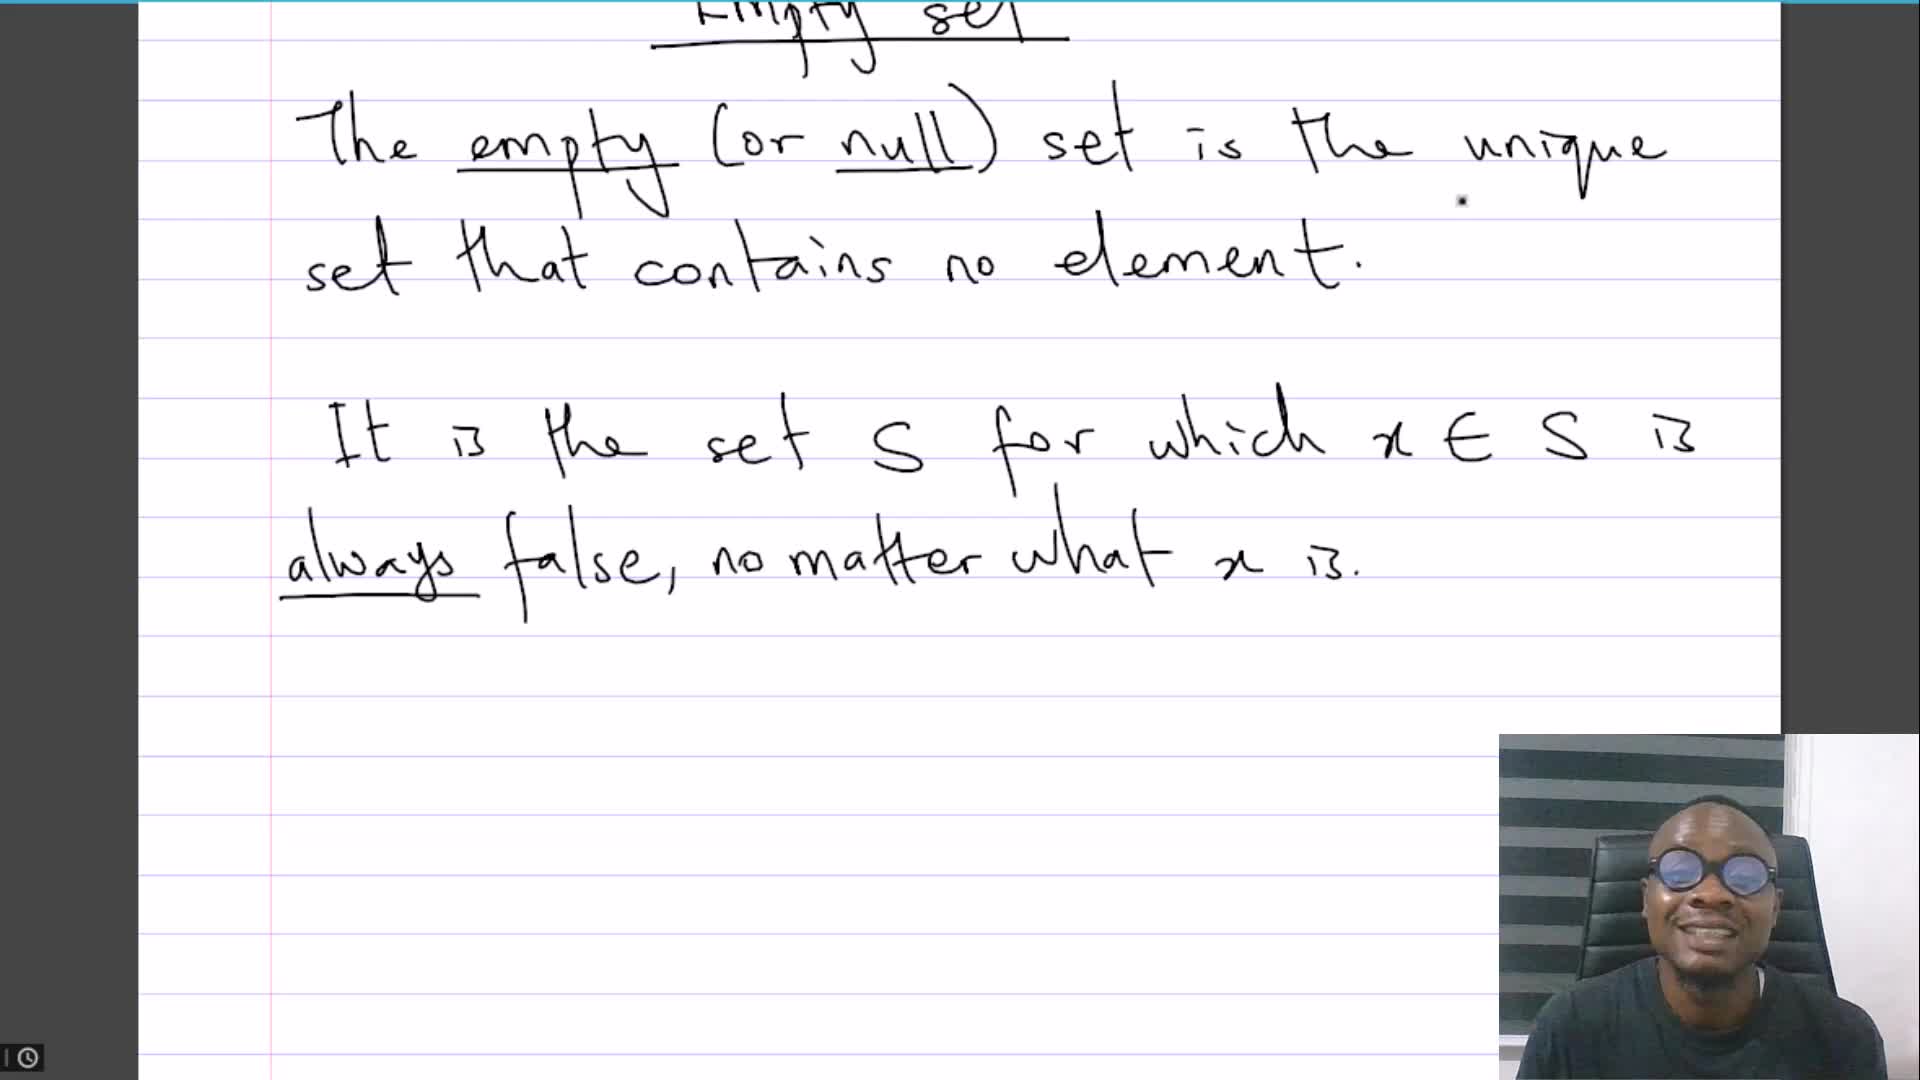 Empty set
The empty (or null) set is the unique
set that contains no element.
It is the set S for which x ∈ S is
always false, no matter what x is.